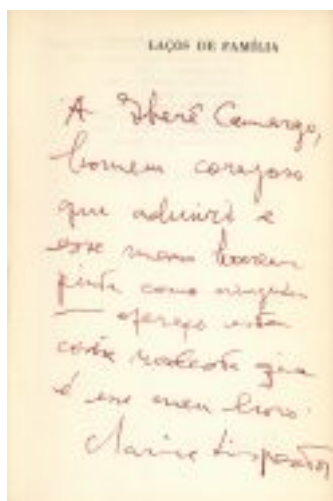 LAÇOS DE FAMÍLIA
A Iberê Camargo,
homem corajoso
que admiro e
esse mesmo homem
pinta como ninguém
— ofereço esta
coisa modesta que
é esse meu livro.
Clarice Lispector